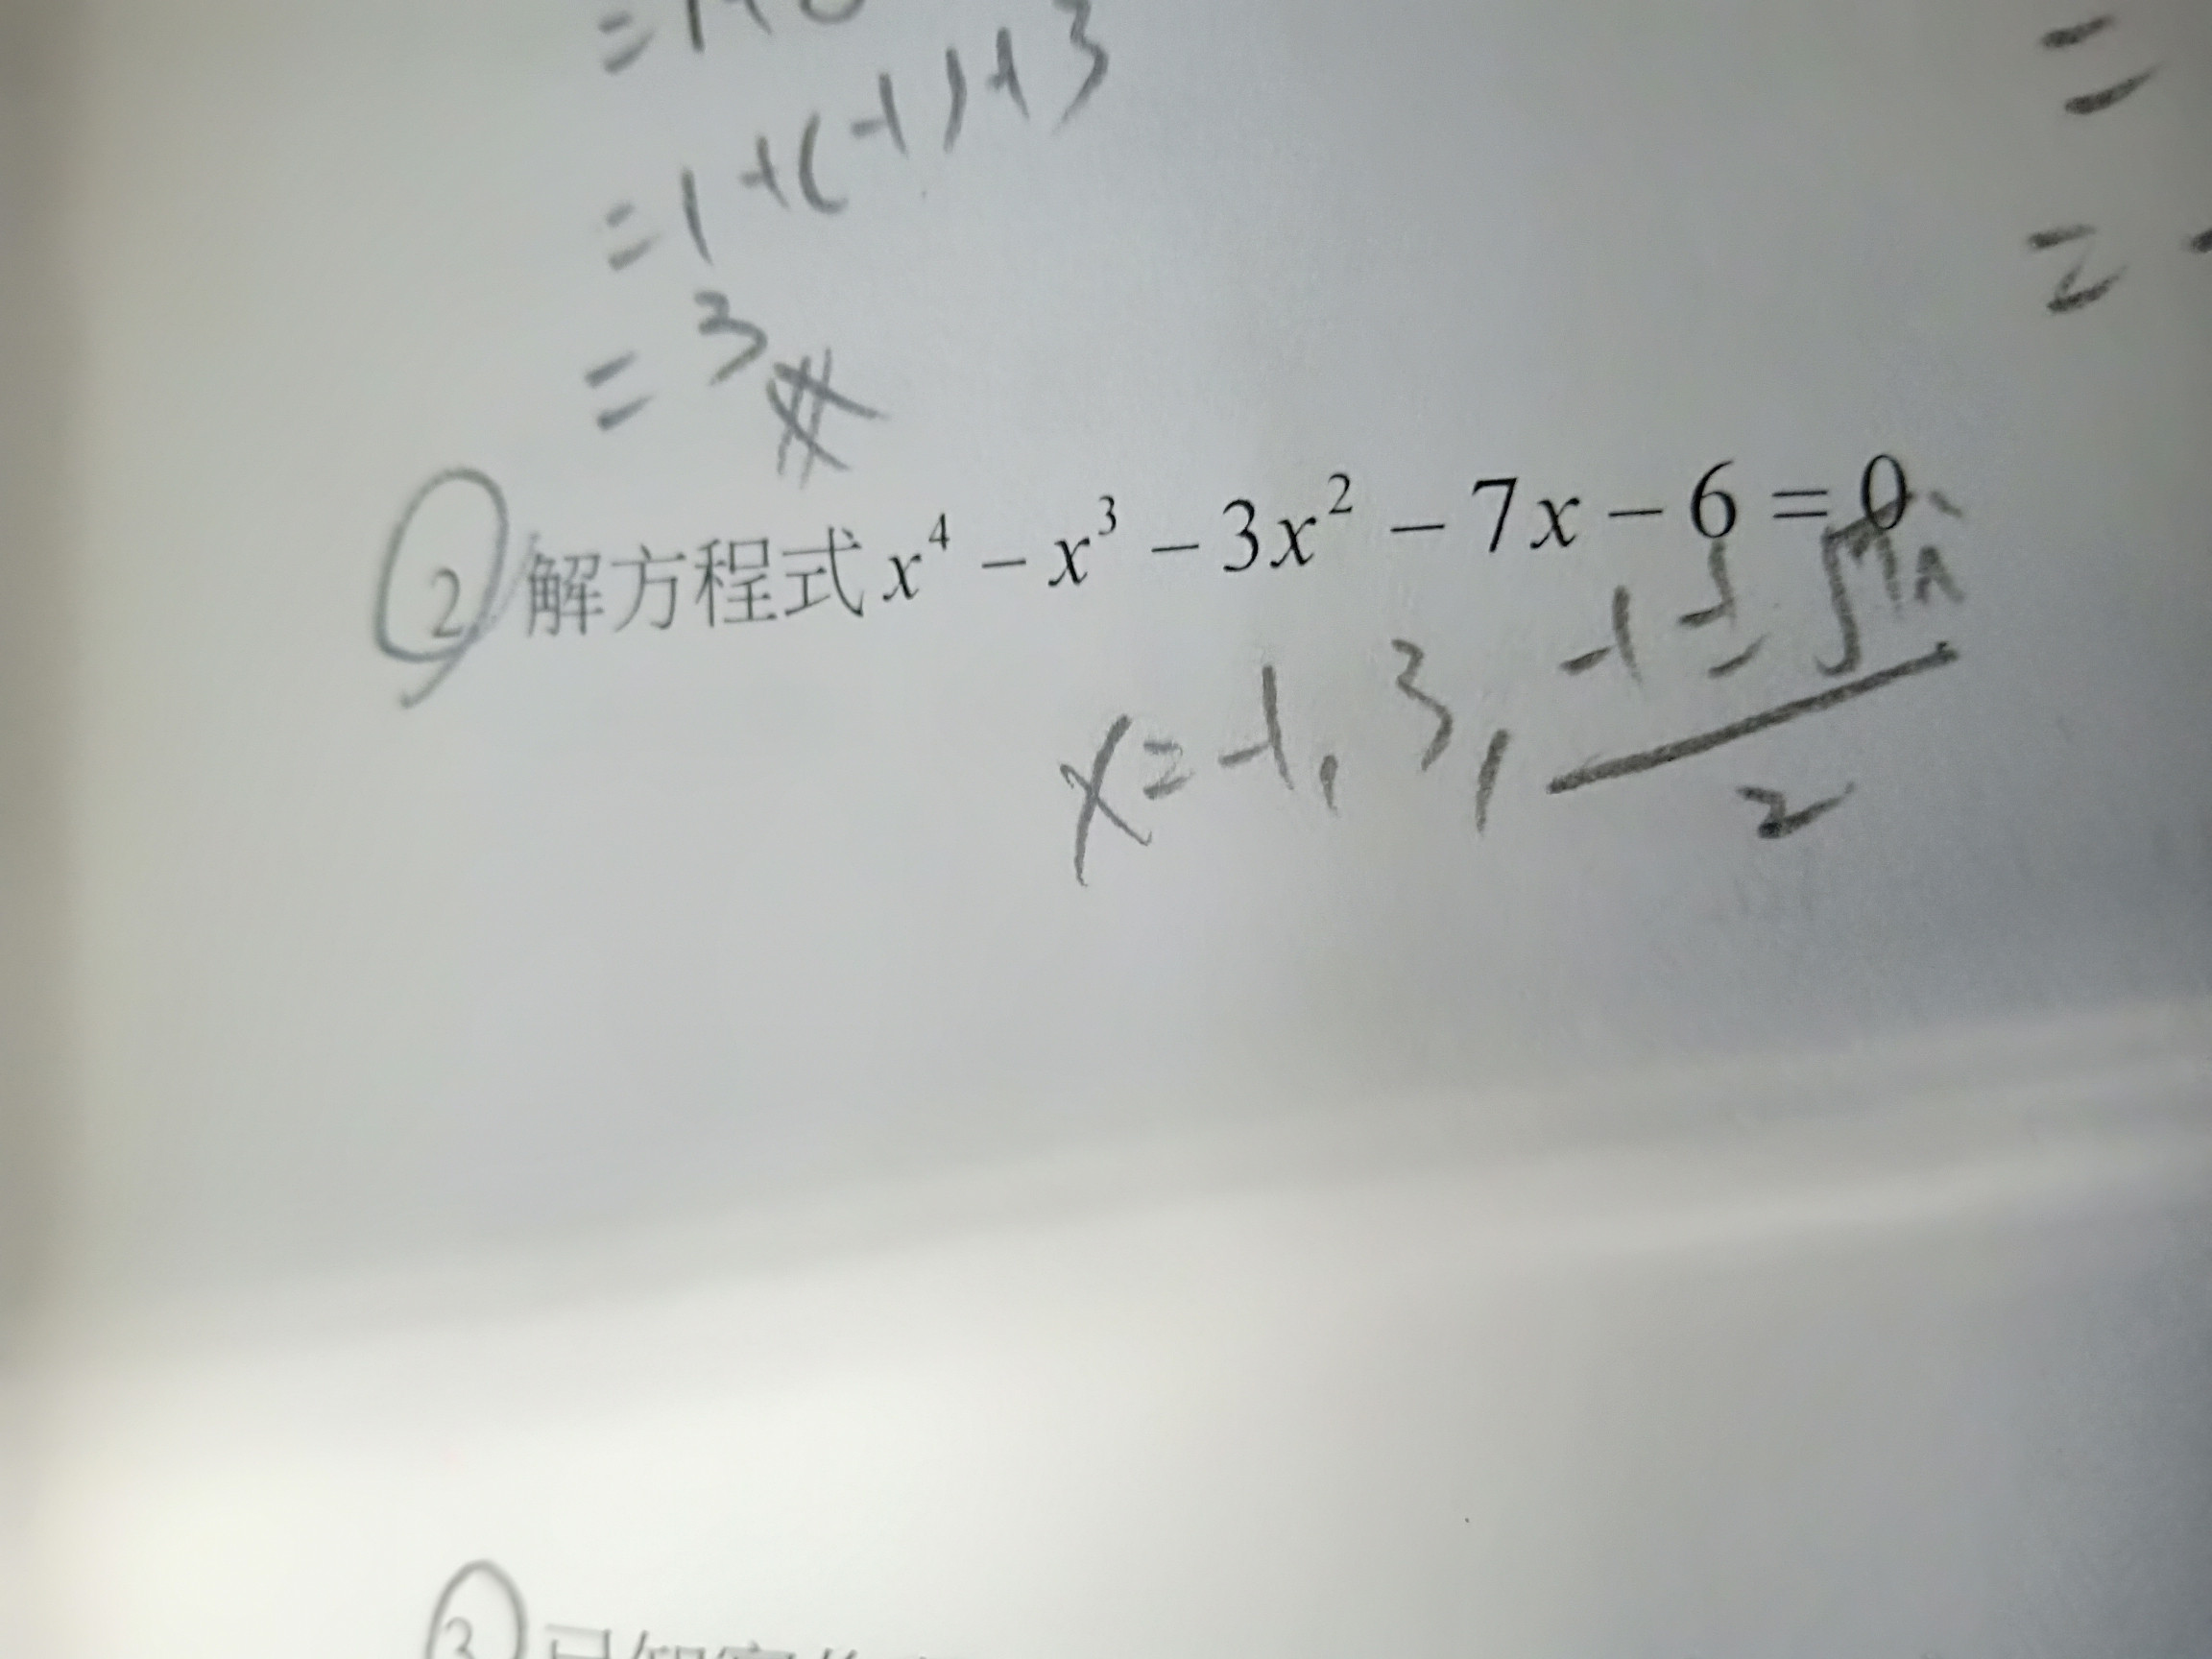 =1+(-1)+3
=3
2 解方程式 x⁴ − x³ − 3x² − 7x − 6 = 0
x=-1, 3, (-1±√7i)/2
3